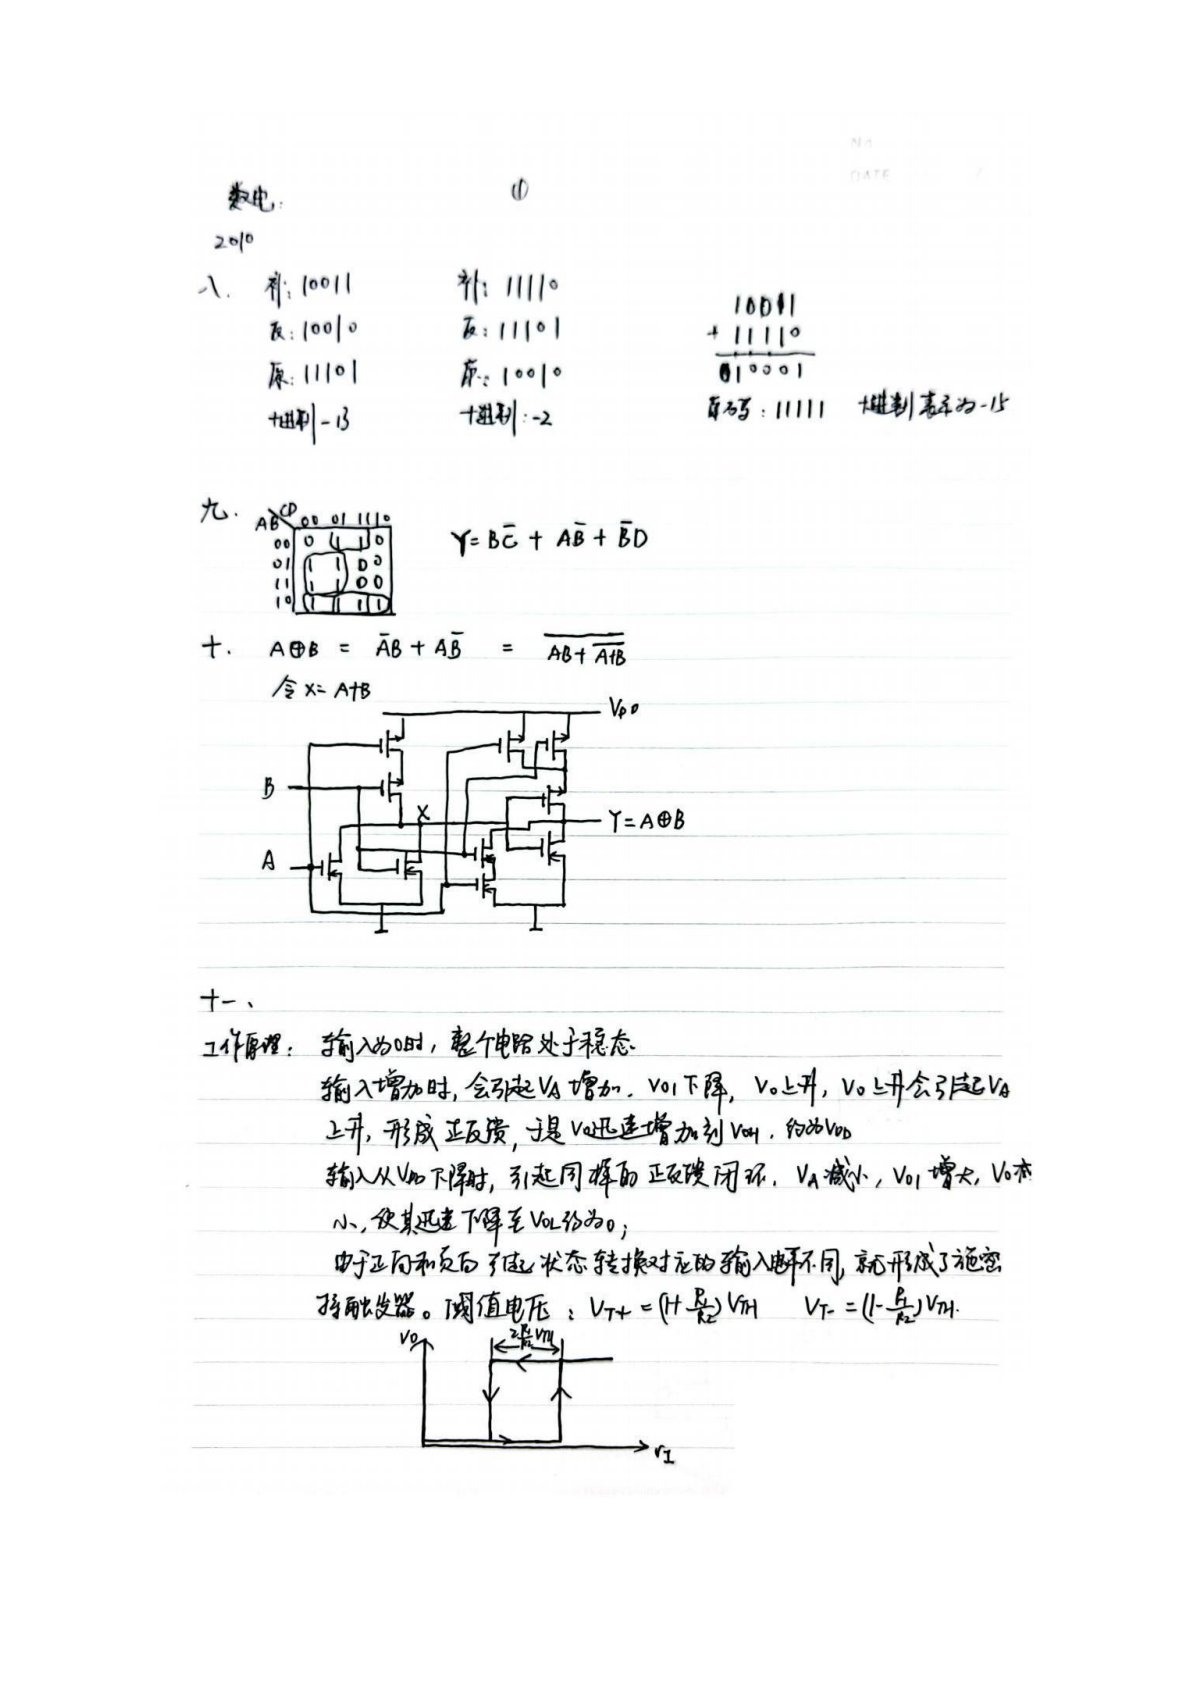 No.
DATE
数电:
①
2010
八. 补: 10011 补: 11110 10011
反: 10010 反: 11101 + 11110
原: 11101 原: 10010 010001
十进制 -13 十进制: -2 原码: 11111 十进制表示为-15
九. AB CD 00 01 11 10
00 0 1 1 0
01 1 1 0 0
11 1 1 0 0
10 1 1 1 1
Y = BC̅ + AB̅ + B̅D
十. A⊕B = A̅B + AB̅ = \overline{AB + \overline{A+B}}
令 X = A+B
VDD
B
X
Y = A⊕B
A
十一、
工作原理: 输入为0时, 整个电路处于稳态.
输入增加时, 会引起VA增加. VO1下降, Vo上升, Vo上升会引起VA
上升, 形成正反馈, 于是Vo迅速增加到VOH. 约为VDD
输入从VDD下降时, 引起同样的正反馈闭环. VA减小, VO1增大, Vo减
小, 使其迅速下降至VOL约为0;
由于正向和负向引起状态转换对应的输入电平不同, 就形成了施密
特触发器。阈值电压: VT+ = (1+R1/R2)VTH VT- = (1-R1/R2)VTH.
VO
2R1/R2 VTH
VI